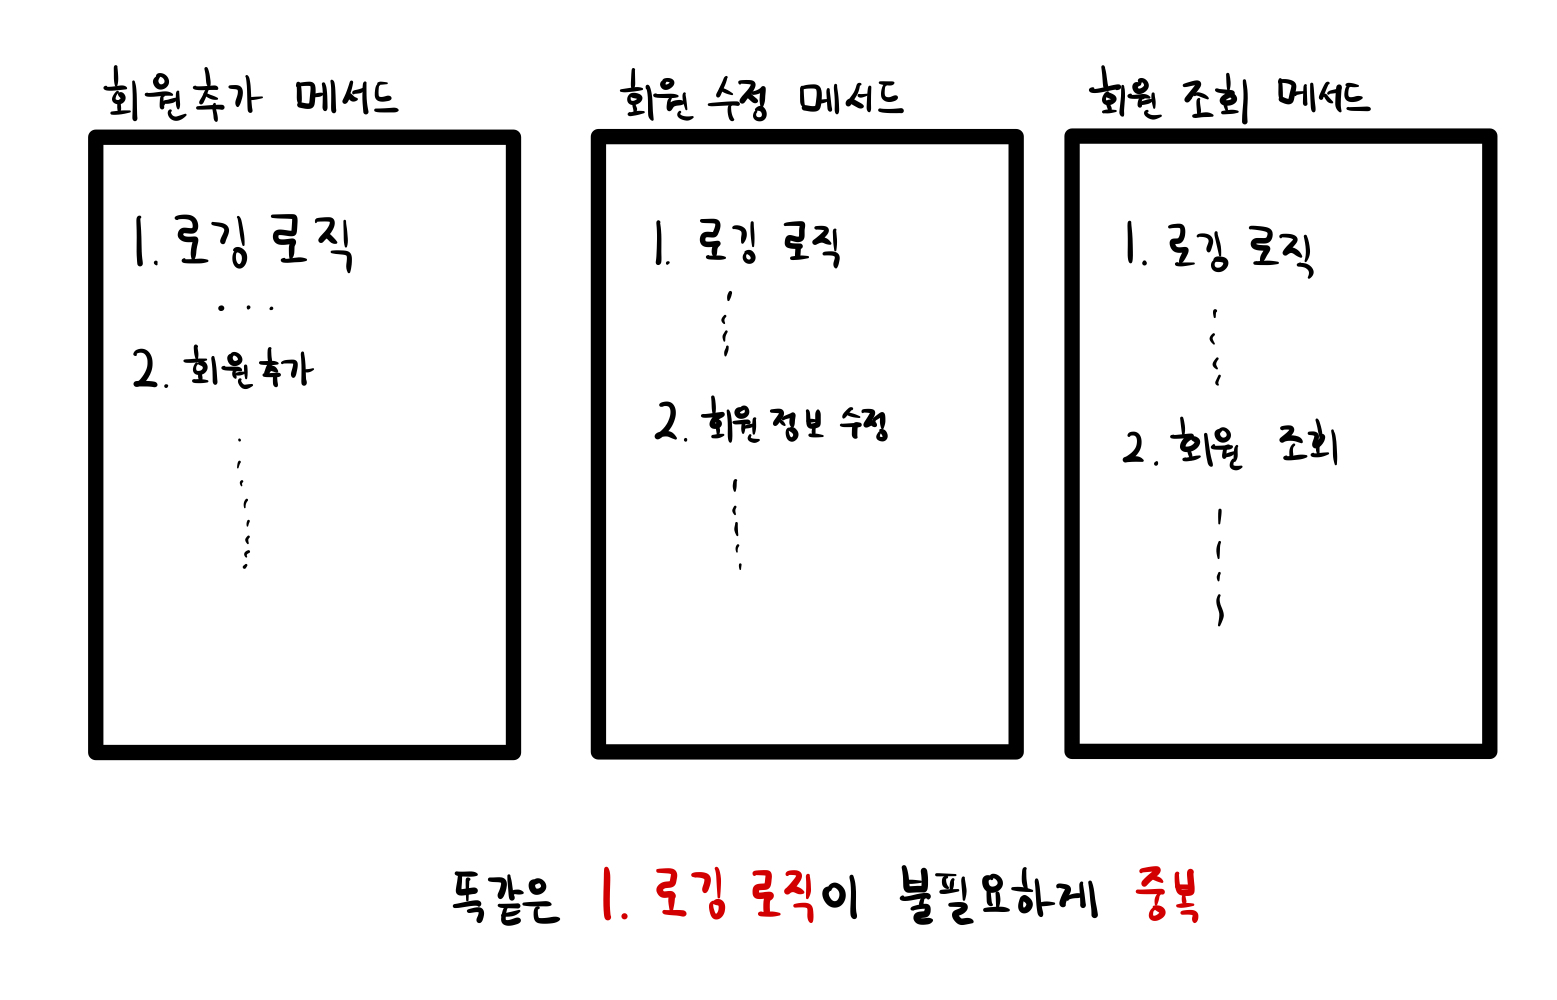 회원추가 메서드
1. 로깅 로직
...
2. 회원추가
회원 수정 메서드
1. 로깅 로직
2. 회원 정보 수정
회원 조회 메서드
1. 로깅 로직
2. 회원 조회
똑같은 1. 로깅 로직이 불필요하게 중복